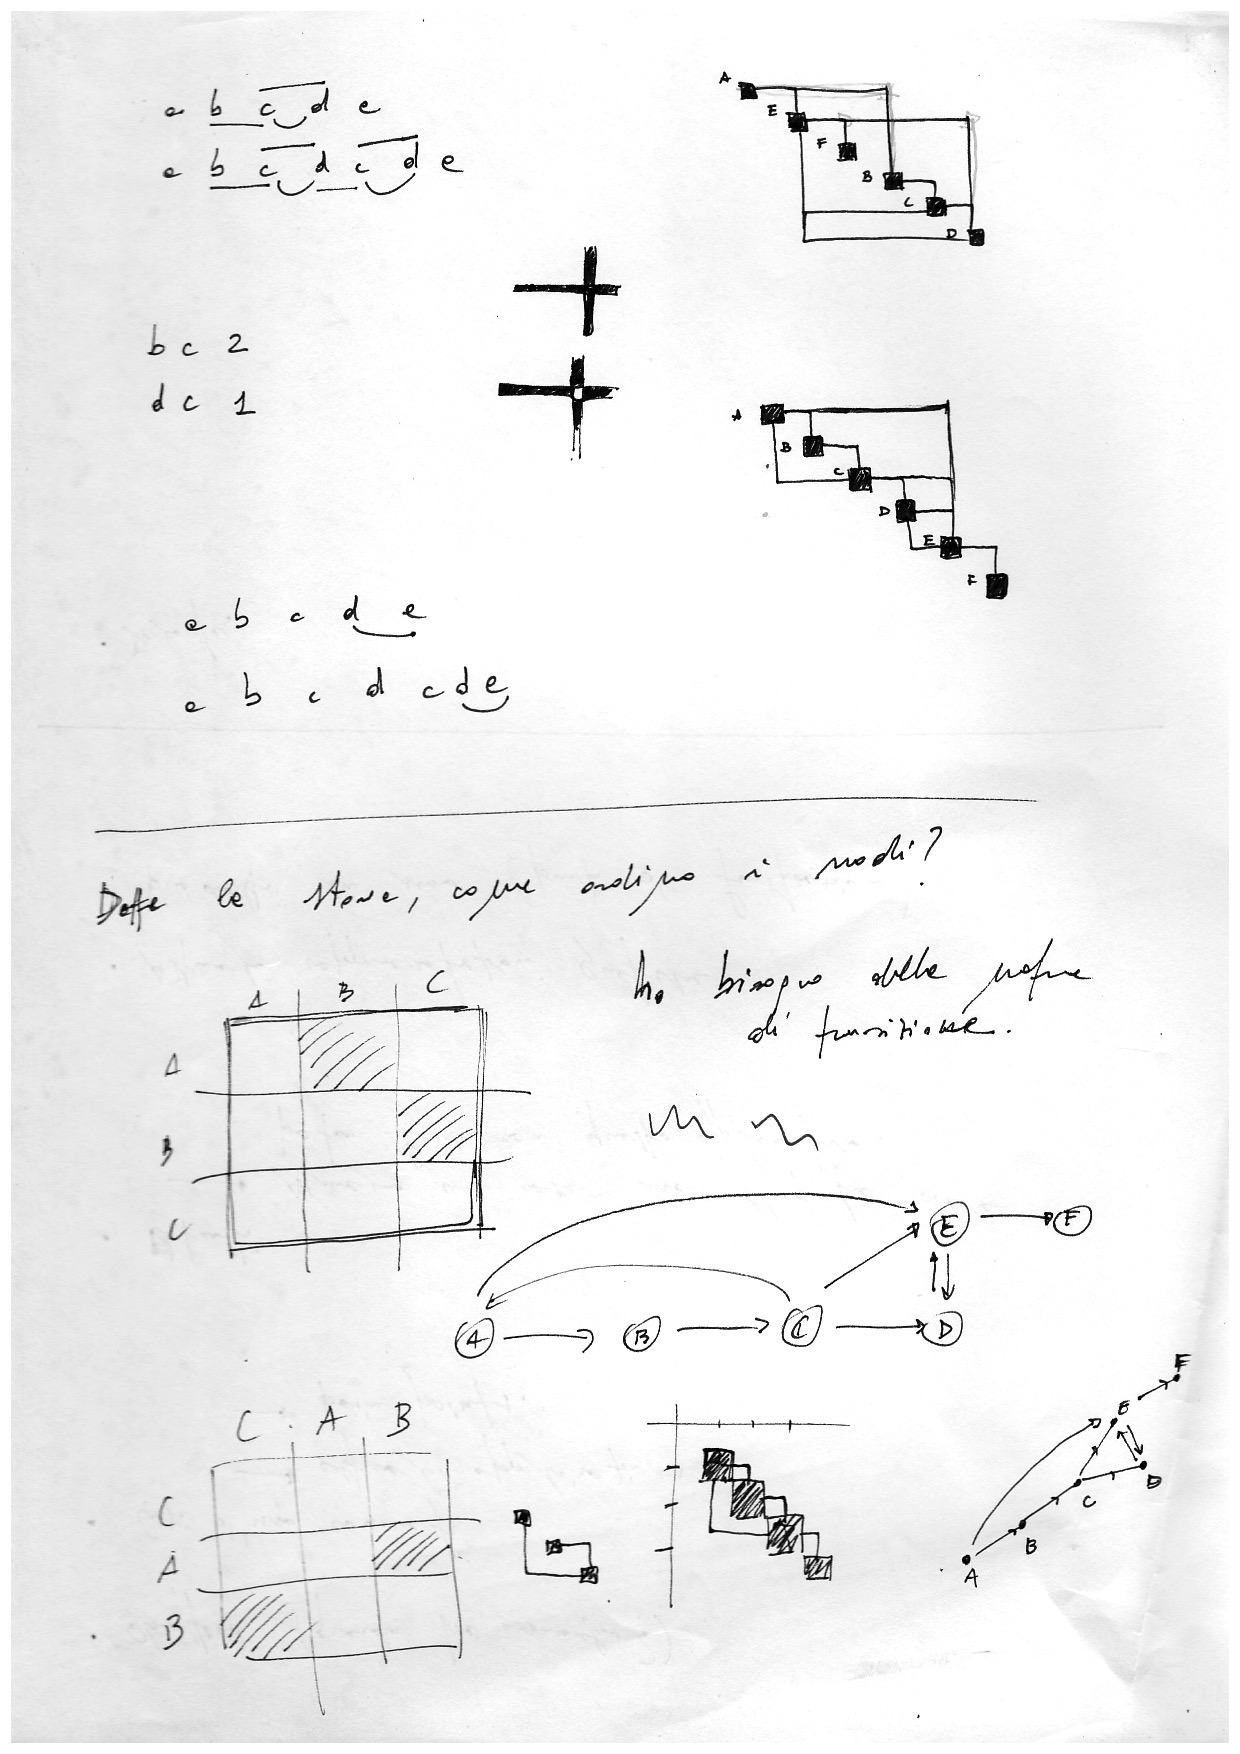 a b c d e
a b c d c d e
b c 2
d c 1
A
E
F
B
C
D
A
B
C
D
E
F
a b c d e
a b c d c d e
Date le storie, come ordino i nodi?
ho bisogno delle
di transizione.
A B C
A
B
C
E F
A B C D
C A B
C
A
B
F
E
D
C
B
A